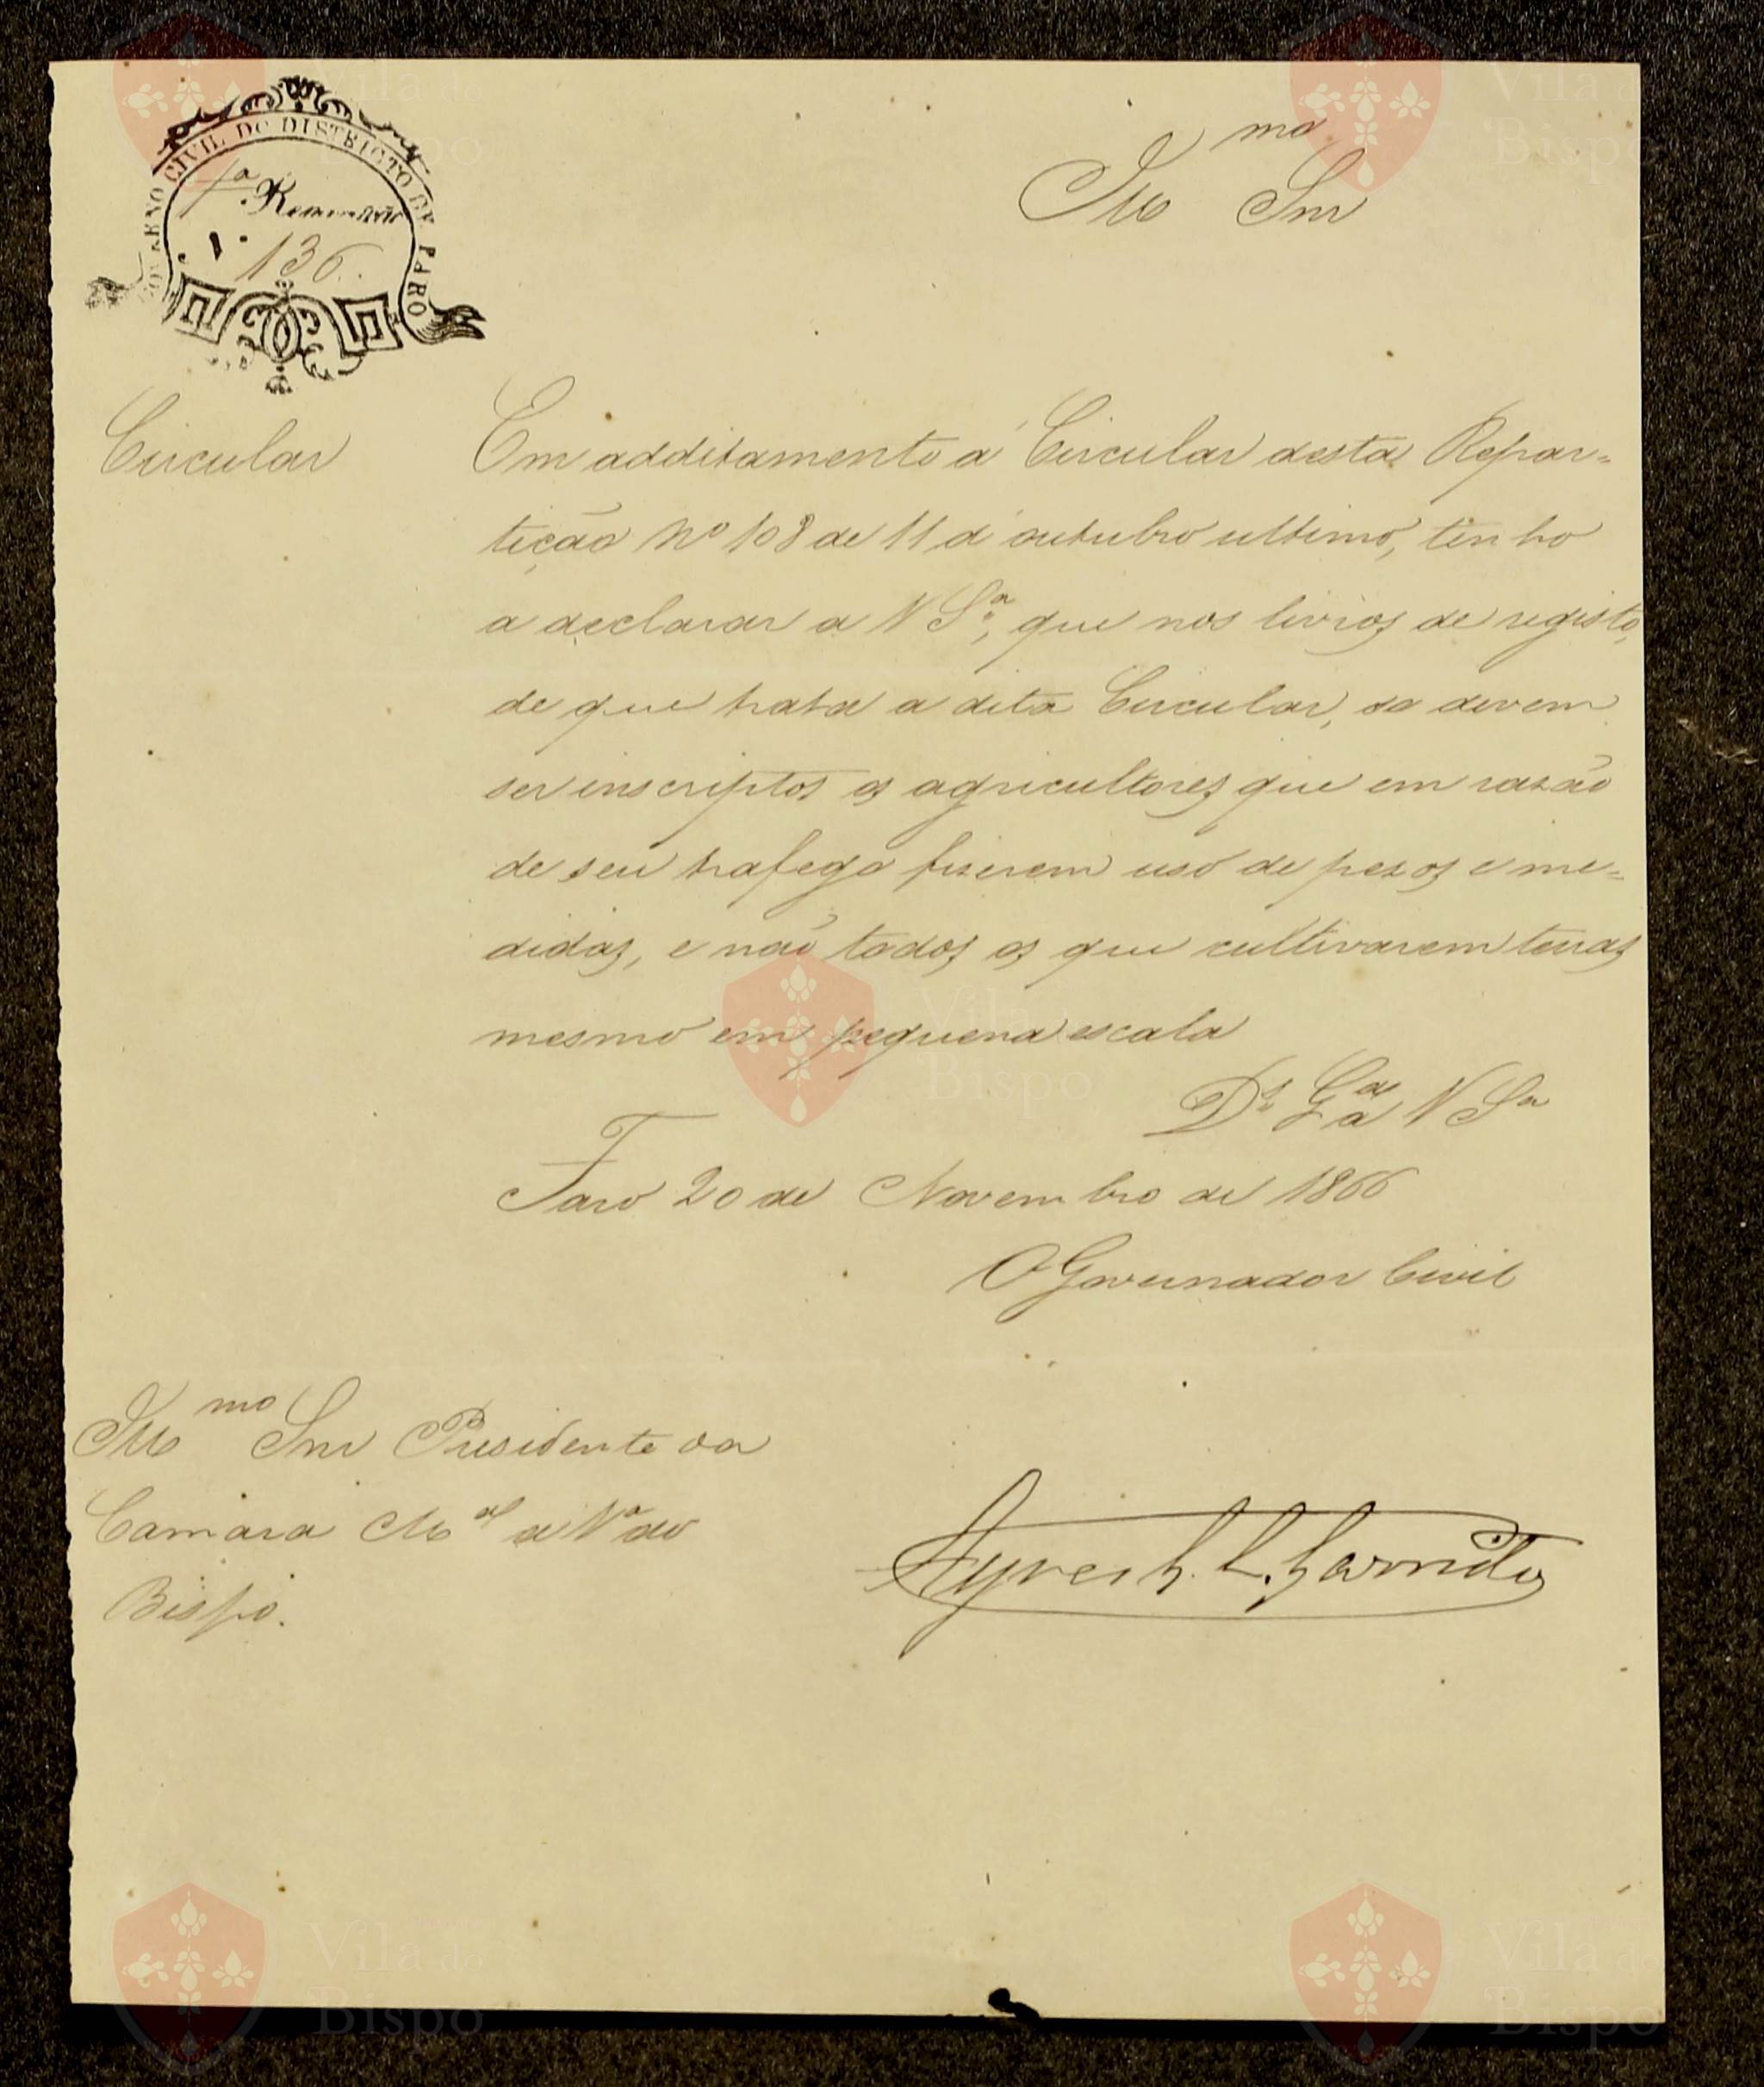 GOVERNO CIVIL DO DISTRICTO DE FARO
1ª Repartição
N.
136
Illmo Snr
Circular
Em additamento á Circular desta Repar=
tição Nº 108 de 11 d'outubro ultimo, tenho
a declarar a V Sª, que nos livros de registo,
de que trata a dita Circular, se devem
ser inscriptos os agricultores que em rasão
de seu trafego fiserem uso de pezos e me=
didas, e não todos os que cultivarem terras
mesmo em pequena escala
Ds Gde a V Sª
Faro 20 de Novembro de 1866
O Governador Civil
Illmo Snr Presidente da
Camara Mal de Vª do
Bispo.
Garrido
Vila do
Bispo